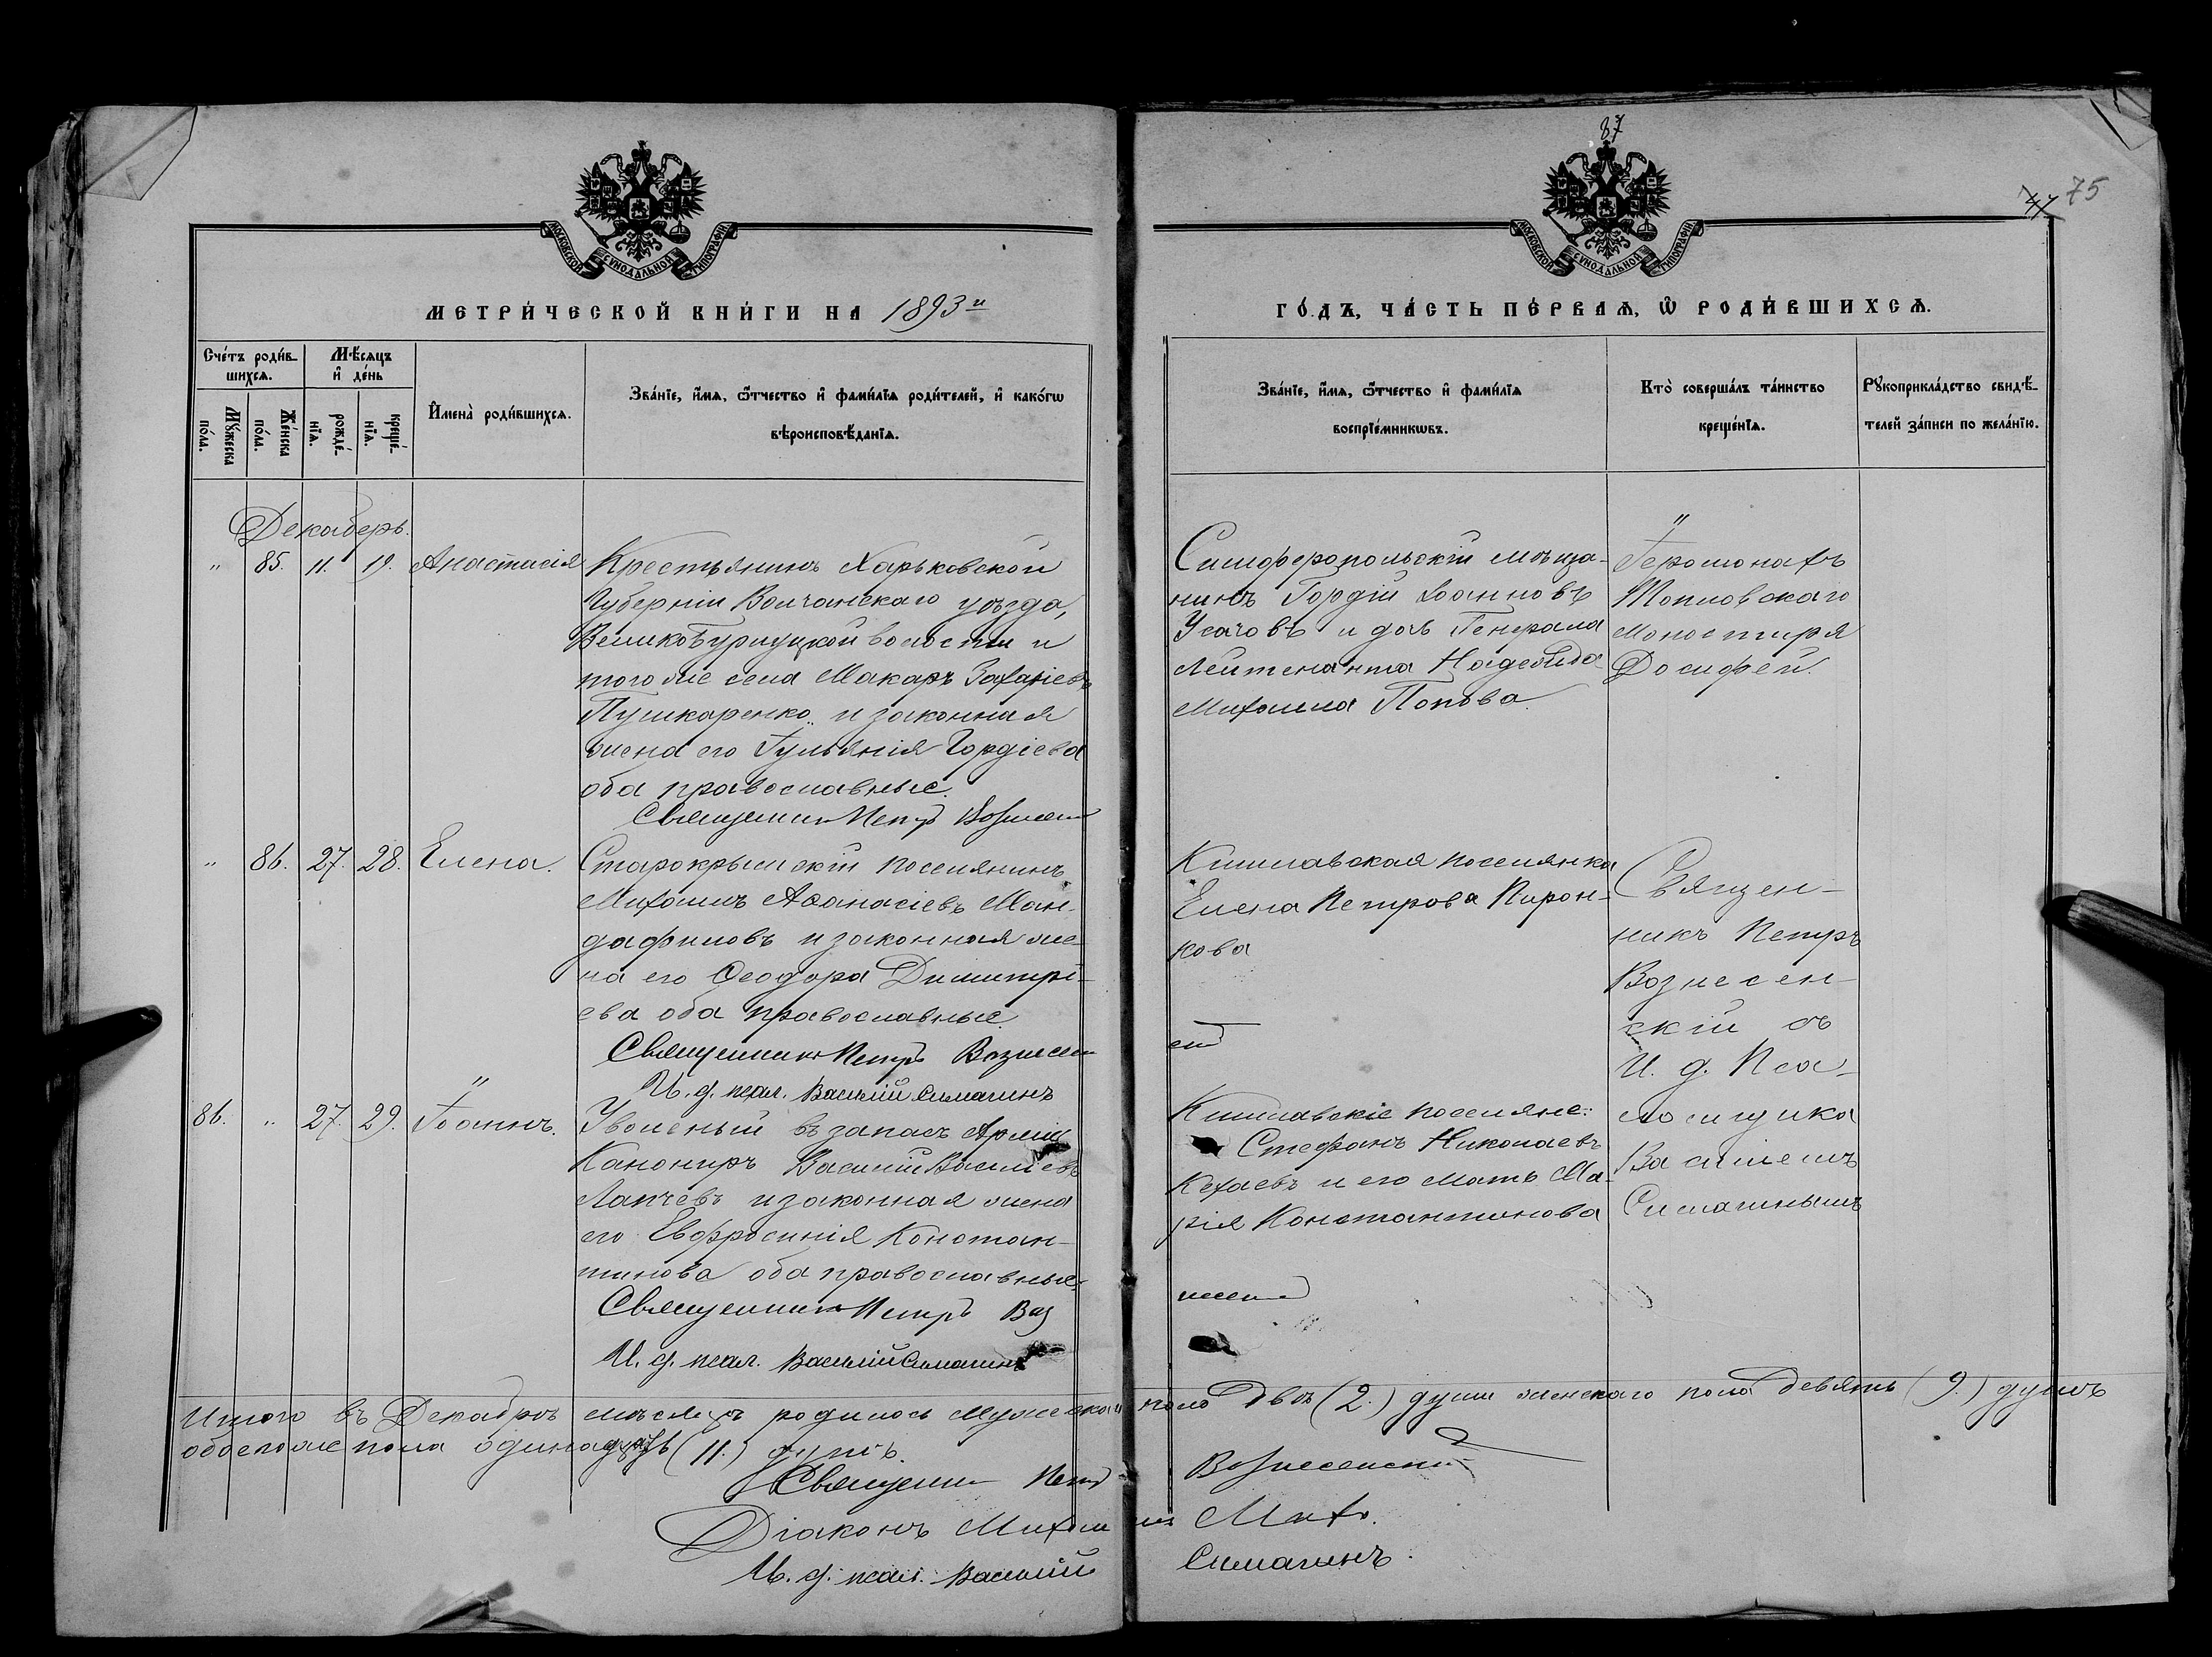 87
75
МОСКОВСКОЙ СѴНОДАЛЬНОЙ ТИПОГРАФІИ
МОСКОВСКОЙ СѴНОДАЛЬНОЙ ТИПОГРАФІИ
МЕТРИ́ЧЕСКОЙ КНИ́ГИ НА 1893й
ГО́ДЪ, ЧА́СТЬ ПЕ́РВАЯ, Ѡ҆ РОДИ́ВШИХСѦ.
Сче́тъ роди́вшихсѧ.
Мѣ́сяцъ и҆ де́нь
Мꙋ́жеска по́ла.
Же́нска по́ла.
рожде́нїѧ.
креще́нїѧ.
И҆мена̀ роди́вшихсѧ.
Зва́нїе, и҆́мѧ, ѻ҆́тчество и҆ фами́лїѧ роди́телей, и҆ како́гѡ
вѣроисповѣ́данїѧ.
Зва́нїе, и҆́мѧ, ѻ҆́тчество и҆ фами́лїѧ
воспрїе́мникѡвъ.
Кто̀ соверша́лъ та́инство
креще́нїѧ.
Рꙋкоприкла́дство свидѣ́-
телей за́писи по жела́нїю.
Декабрь.
" 85. 11. 19. Анастасія
Крестьянинъ Харьковской
Губерніи Волчанскаго уѣзда,
Великобурлуцкой волости и
того же села Макаръ Захаріевъ
Пушкаренко и законная
жена его Іульянія Гордіева
оба православные.
Священникъ Петръ Вознесен
Симферопольскій мѣща-
нинъ Гордій Іоанновъ
Усачовъ и дочь Генерала
Лейтенанта Надежда
Михаила Попова.
"
Іеромонахъ
Топловскаго
Монастыря
Досифей.
" 86. 27. 28. Елена.
Старокрымскій поселянинъ
Михаилъ Аѳанасіевъ Ман-
дафиловъ и законная же-
на его Ѳеодора Димитрі-
ева оба православные.
Священникъ Петръ Вознесен
И. д. псал. Василій Симагинъ
Кишлавская поселянка
Елена Петрова Пирон-
кова
Священ-
никъ Петръ
Вознесен-
скій съ
И. д. Пса-
ломщика
Василіемъ
Симагинымъ
86. " 27. 29. Іоаннъ.
Уволеный въ запасъ Арміи
Канониръ Василій Василіевъ
Лапчевъ и законная жена
его Евфросинія Констан-
тинова оба православные.
Священникъ Петръ Воз
И. д. псал. Василій Симагинъ
Кишлавскіе поселяне:
Стефанъ Николаевъ
Кехаевъ и его мать Ма-
рія Константинова
Итого въ Декабрѣ мѣсяцѣ родилось Мужескаго пола двѣ (2.) души женскаго пола девять (9.) душъ
обоего же пола одинадцать (11.) душъ.
Священникъ Петръ Вознесенскій
Діаконъ Михаилъ Мато.
И. д. псал. Василій Симагинъ.